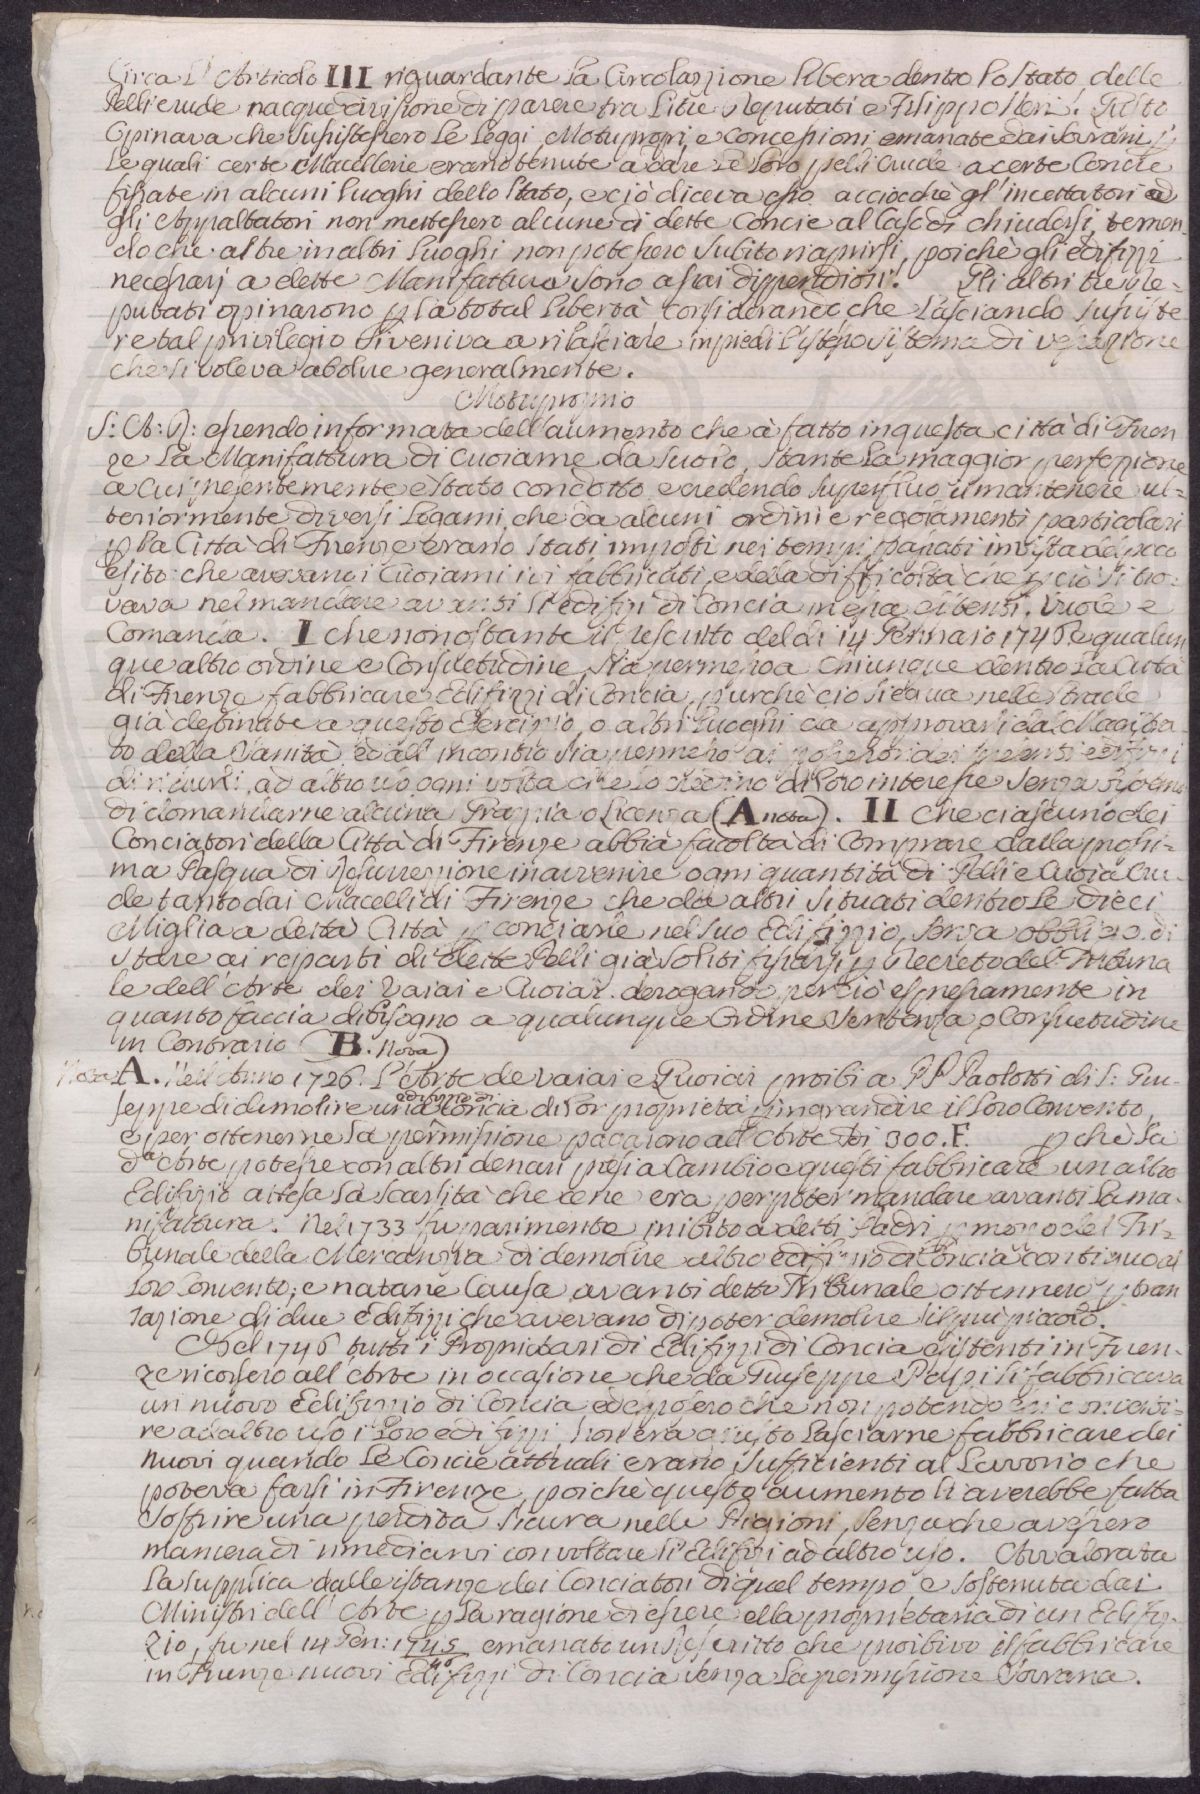 Circa L'Articolo III riguardante La Circolazzione libera dentro lo Stato delle
Pelli crude nacque divisione di parere tra li tre Deputati e Filippo Neri. Questo
Opinava che Susistessero Le Leggi Motupropri, e Concessioni emanate dai Sovrani p
Le quali certe Macellerie erano tenute a dare Le Loro pelli Crude a certe Concie
fissate in alcuni luoghi dello Stato, e ciò diceva esso acciocchè gl'incettatori ed
gli Appaltatori non mettessero alcune di dette Concie al Caso di chiudersi, temen
do che altre in altri luoghi non potessero Subito riaprirsi, poichè gli edifizzi
necessarj a dette Manifatture sono assai dispendiosi. Gli altri tre De=
putati opinarono p la total libertà Considerando che Lasciando Susiste
re tal privilegio Si veniva a rilasciare in piedi l'istesso Sistema di vessazione
che Si voleva abolire generalmente.
Motuproprio
S: A: R: essendo informata dell'aumento che à fatto in questa città di Firen
ze La Manifattura di Cuoiame da Suolo, Stante La maggior perfezzione
a Cui presentemente è Stato condotto, e credendo Superfluo il mantenere ul=
teriormente diversi Legami, che da alcuni ordini e regolamenti particolari
p la Città di Firenze erano Stati imposti nei tempi passati in vista del poco
esito che avevano i Cuoiami ivi fabbricati, e della difficoltà che p ciò Si tro-
vava nel mandare avanti li edifizi di Concia in essa esistenti. Vuole e
Comanda. I che nonostante il rescritto del dì 14 Gennaio 1745 e qualun
que altro ordine e Consuetudine, Sia permesso a Chiunque dentro La Città
di Firenze fabbricare Edifizzi di Concia, purchè ciò Segua nelle Strade
già destinate a questo Esercizio, o altri luoghi da approvarsi dal Magistra-
to della Sanità, ed all'incontro Sia permesso ai possessori dei presenti edifizzi
di ridurli ad altro uso ogni volta che lo credino di Loro interesse Senza bisogno
di domandarne alcuna Grazzia o Licenza (A nota). II Che ciascuno dei
Conciatori della Città di Firenze abbia facoltà di Comprare dalla prossi-
ma Pasqua di Resurrezzione in avvenire ogni quantità di Pelli e Cuoia Cru-
de tanto dai Macelli di Firenze che da altri Situati dentro Le dieci
Miglia a detta Città p conciarle nel Suo Edifizzio, Senza obbligo di
Stare ai reparti di dette Pelli già Soliti fissarsi p Decreto del Tribuna
le dell'Arte dei Vaiai e Cuoiai. derogando perciò espressamente in
quanto faccia di bisogno a qualunque Ordine Sentenza o Consuetudine
in Contrario (B. Nota)
Nota A. Nell'Anno 1726. L'Arte de Vaiai e Quoiai proibì a PP. Paolotti di S: Giu-
edifizzio di
seppe di demolire una Concia di Lor proprietà p ingrandire il Loro Convento,
e per ottenerne La permissione pagarono all'Arte di 300. F. p chè La
da Arte potesse con altri denari presi a Cambio e questi fabbricare un altro
Edifizio attesa La Scarsità che ce ne era per poter mandare avanti La ma-
nifattura. Nel 1733 fu parimente inibito a detti Padri p mezzo del Tri=
bunale della Mercanzia di demolire altro edifizio di Concia contiguo al
Loro Convento; e natane Causa avanti detto Tribunale ottennero p tran
sazione di due Edifizzi che avevano di poter demolire il più piccolo.
Nel 1746 tutti i Proprietari di Edifizzi di Concia esistenti in Firen-
ze ricorsero all'Arte in occasione che da Giuseppe Pespi Si fabbricava
un nuovo Edifizzio di Concia ed esposero che non potendo essi converti=
re ad altro uso i Loro edifizzi, non era giusto Lasciarne fabbricare dei
Nuovi quando Le Concie attuali erano Sufficienti al Lavorio che
poteva farsi in Firenze, poichè questo aumento li averebbe fatta
Soffrire una perdita Sicura nelle Pigioni, Senza che avessero
maniera di rimediarvi con voltare li Edifizi ad altro uso. Avvalorata
La Supplica dalle istanze dei Conciatori di quel tempo e Sostenuta dai
Ministri dell'Arte p La ragione di essere ella proprietaria di un Edifiz-
zio, fu nel 14 Gen: 1745 emanato un Rescritto che proibiva il fabbricare
46
in Firenze nuovi Edifizzi di Concia Senza La permissione Sovrana.